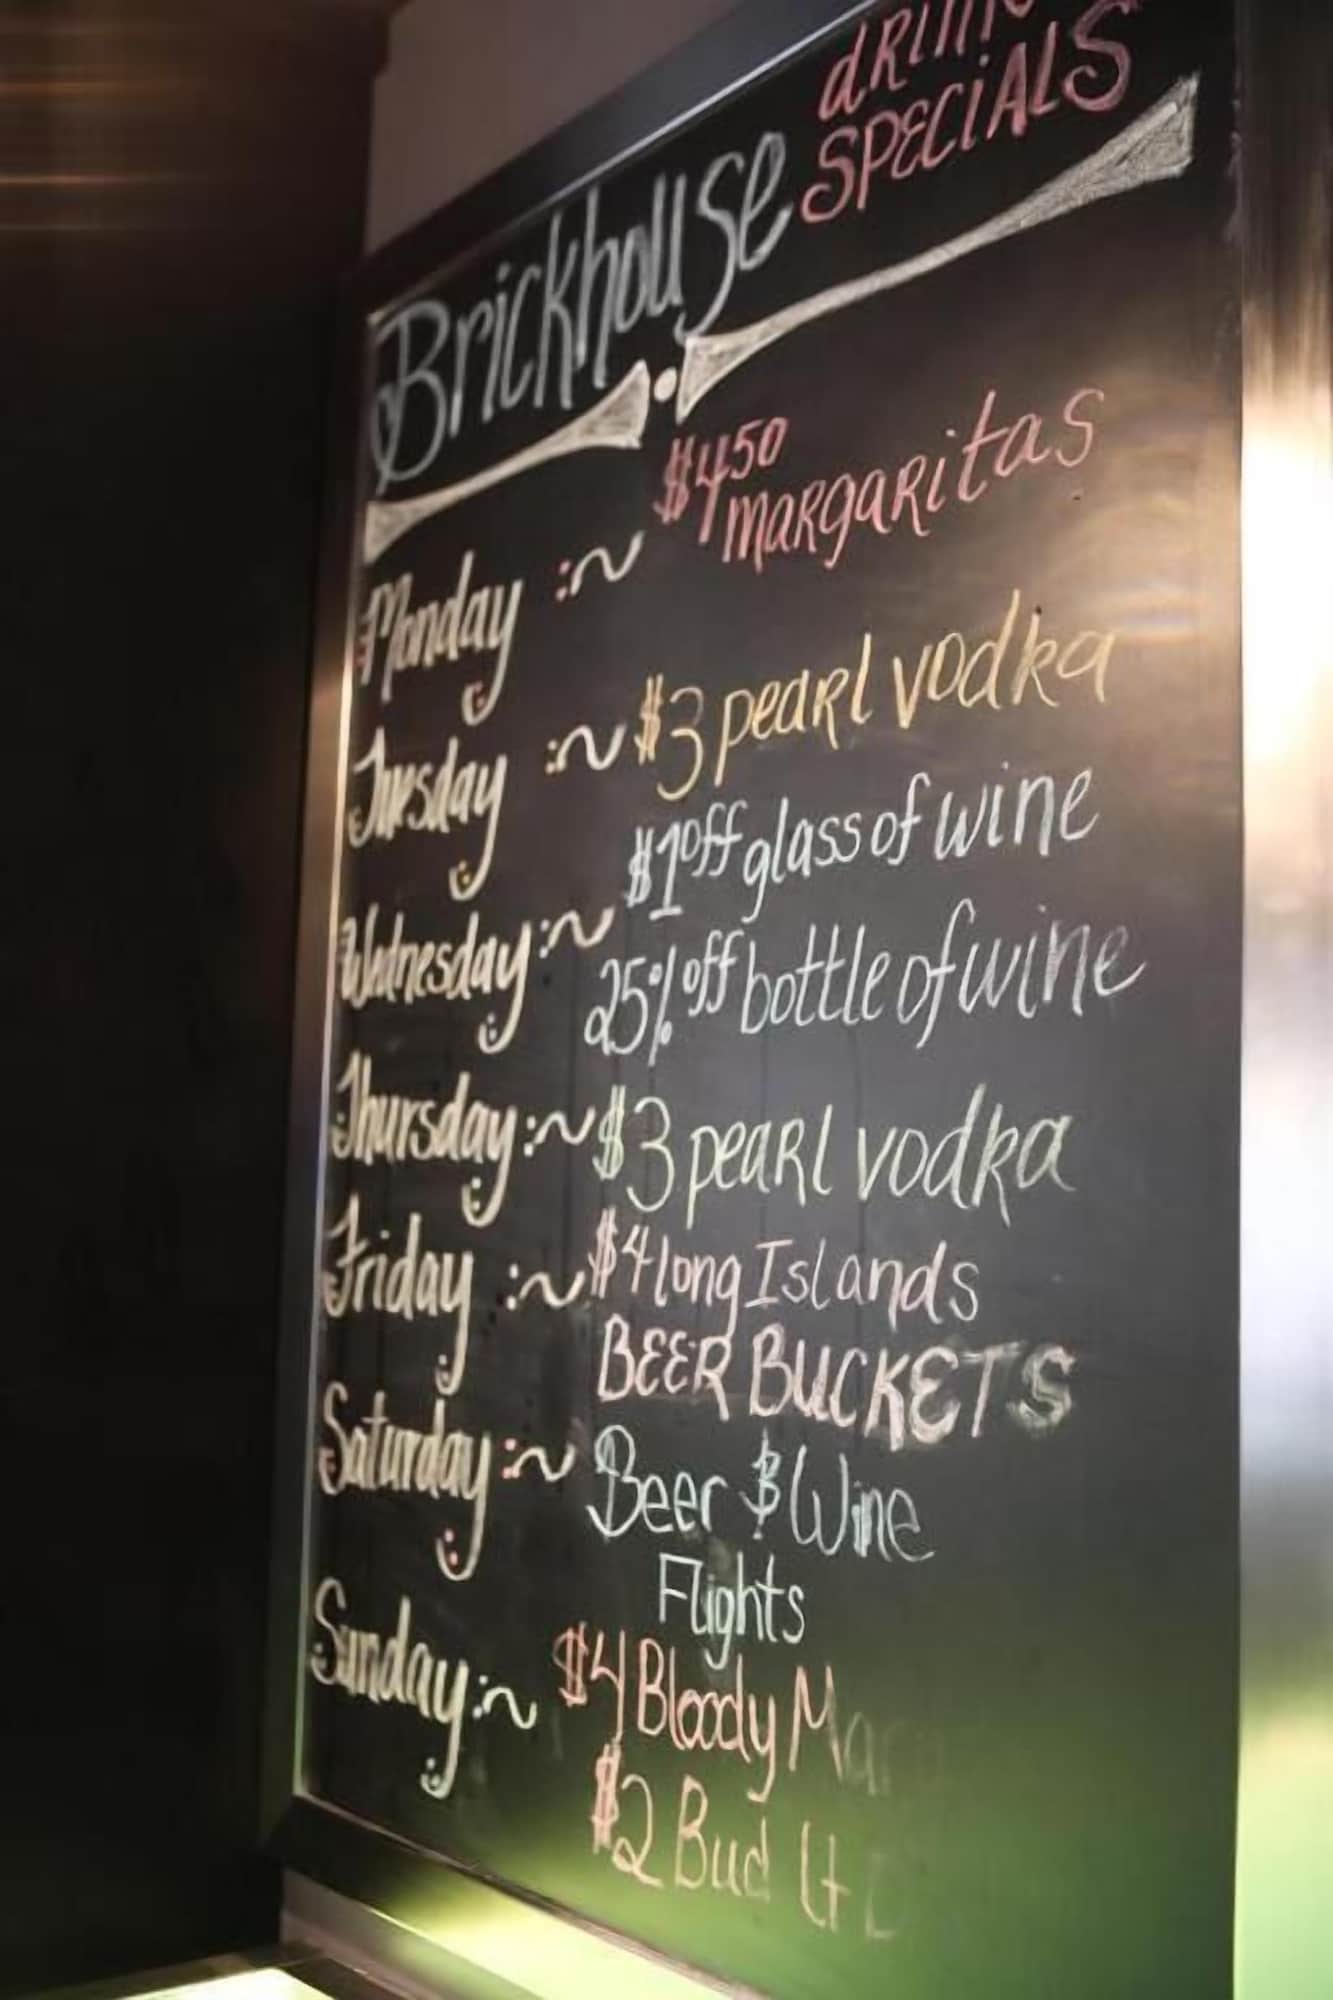 Brickhouse dRINK SPECIALS
Monday :~ $4 50 MARGARitas
Tuesday :~ $3 peaRl vodka
$1 off glass of wine
Wednesday :~ 25% off bottle of wine
Thursday :~ $3 peaRl vodka
Friday :~ $4 long Islands
BEER BUCKETS
Saturday :~ Beer & Wine
Flights
Sunday :~ $4 Bloody Mary
$2 Bud Lt